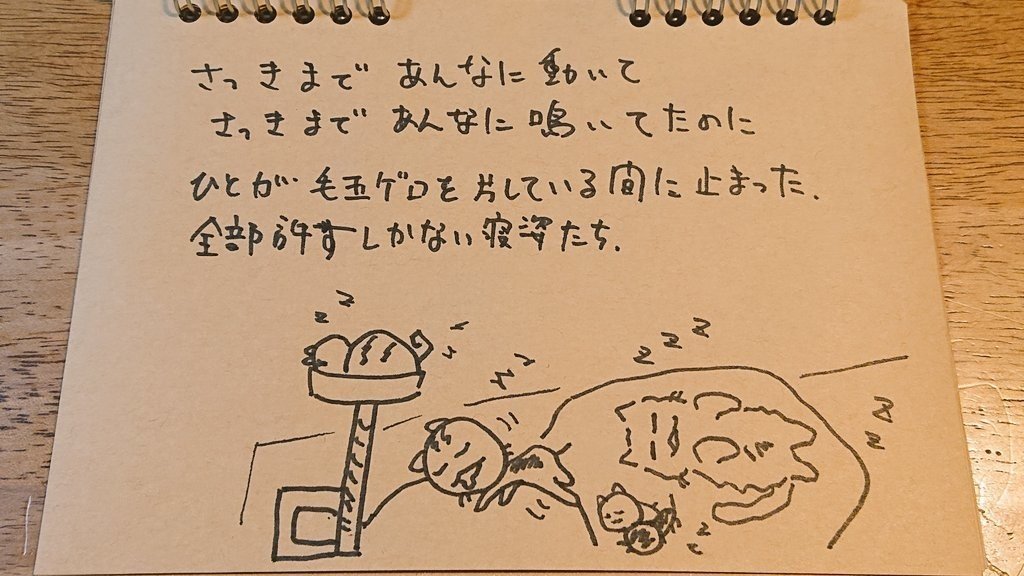 さっきまで あんなに動いて
さっきまで あんなに鳴いてたのに
ひとが 毛玉ゲロを片している間に止まった.
全部許すしかない寝姿たち.
z
z
z z z
z
z
z